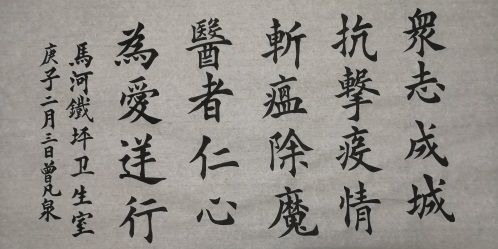 衆志成城
抗擊疫情
斬瘟除魔
醫者仁心
為愛逆行
馬河鐵坪卫生室
庚子二月三日曾凡泉